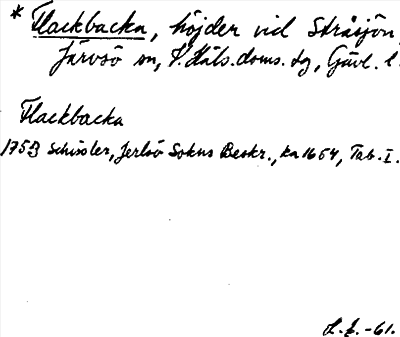 * Flackbacka, höjder vid Stråsjön,
Järvsö sn, V. Häls. doms. dg, Gävl. l.
Flackbacka
1753 Schissler, Jerlsö Sokns Beskr., ka 1654, Tab. I.
L.E. -61.